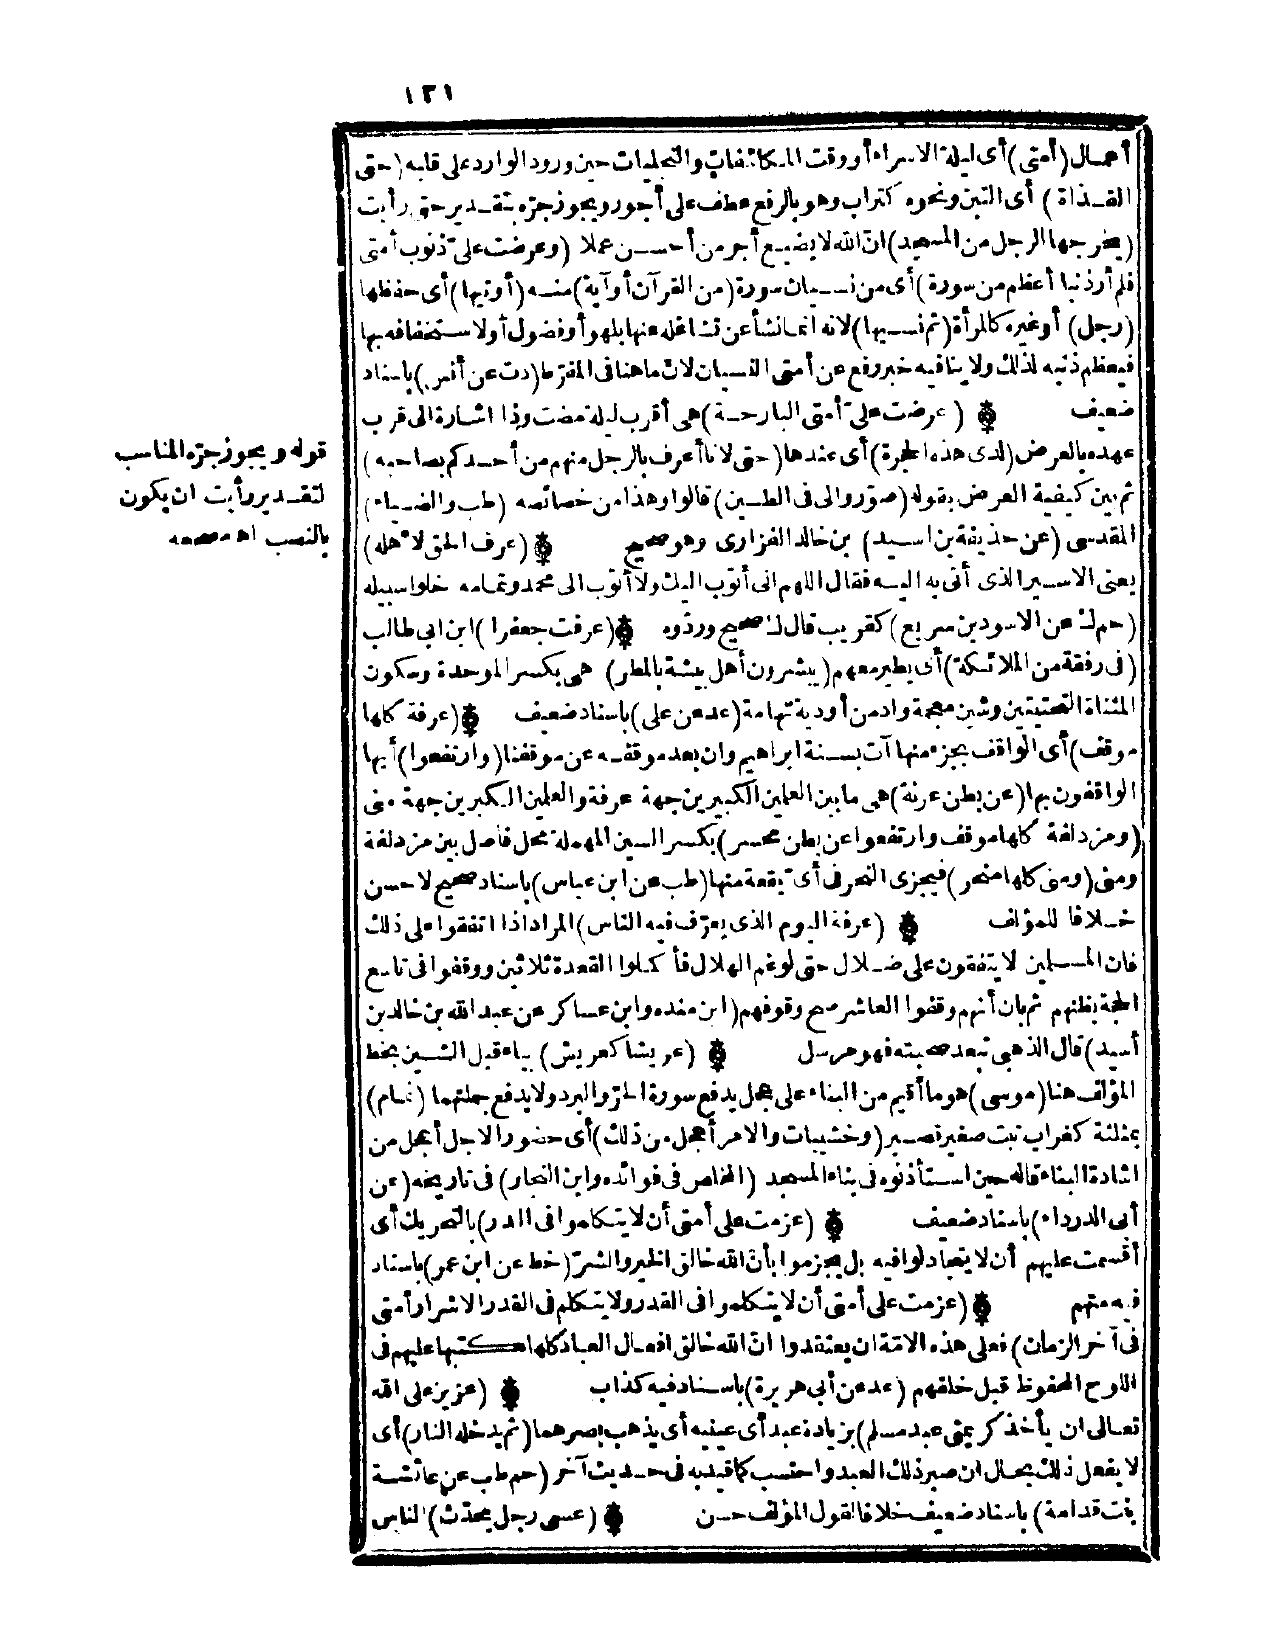 ١٢١
أعمال (أمتى) أى ليلة الاسراء أو وقت المكاشفات والتجليات حين ورود الوارد على قلبه (حتى
القذاة) أى التبن ونحوه كتراب وهو بالرفع عطف على أجور ويجوز جره بتقدير حتى رأيت
(يخرجها الرجل من المسجد) انّ الله لا يضيع أجر من أحسن عملا (وعرضت علىّ ذنوب أمتى
فلم أر ذنبا أعظم من سورة) أى من نسيان سورة (من القرآن أو آية) منه (أوتيها) أى حفظها
(رجل) أو غيره كالمرأة (ثم نسيها) لانه انما نشأ عن تشاغله عنها بلهو أو فضول أو لاستخفافه بها
فيعظم ذنبه لذلك ولا ينافيه خبر رفع عن أمتى النسيان لانّ ما هنا فى المفرّط (د ت عن أنس) باسناد
ضعيف ۞ (عرضت علىّ أمتى البارحة) هى أقرب ليلة مضت وذا اشارة الى قرب
عهده بالعرض (لدى هذه الحجرة) أى عندها (حتى لانا أعرف بالرجل منهم من أحدكم بصاحبه)
ثم بين كيفية العرض بقوله (صوّروا لى فى الطين) قالوا وهذا من خصائصه (طب والضياء)
المقدسى (عن حذيفة بن اسيد) بن خالد الفزارى وهو صحيح ۞ (عرف الحق لاهله)
يعنى الاسير الذى أتى به اليه فقال اللهم انى أتوب اليك ولا أتوب الى محمد وتمامه خلوا سبيله
(حم ك عن الاسود بن سريع) كقريب قال ك صحيح وردّوه ۞ (عرفت جعفرا) ابن ابى طالب
(فى رفقة من الملائكة) أى يطير معهم (يبشرون أهل بيشة بالمطر) هى بكسر الموحدة وسكون
المثناة التحتيتين وشين معجمة واد من أودية تهامة (عد عن على) باسناد ضعيف ۞ (عرفة كلها
موقف) أى الواقف بجزء منها آت بسنة ابراهيم وان بعد موقفه عن موقفنا (وارتفعوا) أيها
الواقفون بها (عن بطن عرنة) هى ما بين العلمين الكبيرين جهة عرفة والعلمين الكبيرين جهة منى
(ومزدلفة كلها موقف وارتفعوا عن بطن محسر) بكسر السين المهملة محل فاصل بين مزدلفة
ومنى (ومنى كلها منحر) فيجزى النحر فى أىّ بقعة منها (طب عن ابن عباس) باسناد صحيح لا حسن
خلافا للمؤلف ۞ (عرفة اليوم الذى يعرّف فيه الناس) المراد اذا اتفقوا على ذلك
فان المسلمين لا يتفقون على ضلال حتى لو غم الهلال فأكملوا القعدة ثلاثين ووقفوا فى تاسع
الحجة بظنهم ثم بان أنهم وقفوا العاشر صح وقوفهم (ابن منده وابن عساكر عن عبد الله بن خالد بن
أسيد) قال الذهبى تبعد صحبته فهو مرسل ۞ (عريشا كعريش) بياء قبل الشين بخط
المؤلف هنا (موسى) هو ما أقيم من البناء على عجل يدفع سورة الحرّ والبرد ولا يدفع جملتهما (ثمام)
بمثلثة كغراب نبت صغير قصير (وخشيبات والامر أعجل من ذلك) أى حضور الاجل أعجل من
اشادة البناء قاله حين استأذنوه فى بناء المسجد (المخلص فى فوائده وابن النجار) فى تاريخه (عن
أبى الدرداء) باسناد ضعيف ۞ (عزمت على أمتى أن لا يتكلموا فى القدر) بالتحريك أى
أقسمت عليهم أن لا يتجادلوا فيه بل يجزموا بأن الله خالق الخير والشرّ (خط عن ابن عمر) باسناد
فيه متهم ۞ (عزمت على أمتى أن لا يتكلموا فى القدر ولا يتكلم فى القدر الا شرار أمتى
فى آخر الزمان) فعلى هذه الامّة ان يعتقدوا انّ الله خالق افعال العباد كلها كتبها عليهم فى
اللوح المحفوظ قبل خلقهم (عد عن أبى هريرة) باسناد فيه كذاب ۞ (عزيز على الله
تعالى ان يأخذ كريمتى عبد مسلم) بزيادة عبد أى عينيه أى يذهب بصرهما (ثم يدخله النار) أى
لا يفعل ذلك بحال ان صبر ذلك العبد واحتسب كما قيد به فى حديث آخر (حم طب عن عائشة
بنت قدامة) باسناد ضعيف خلافا لقول المؤلف حسن ۞ (عسى رجل يحدّث) الناس
قوله ويجوز جره المناسب
لتقدير رأيت ان يكون
بالنصب اه مصححه